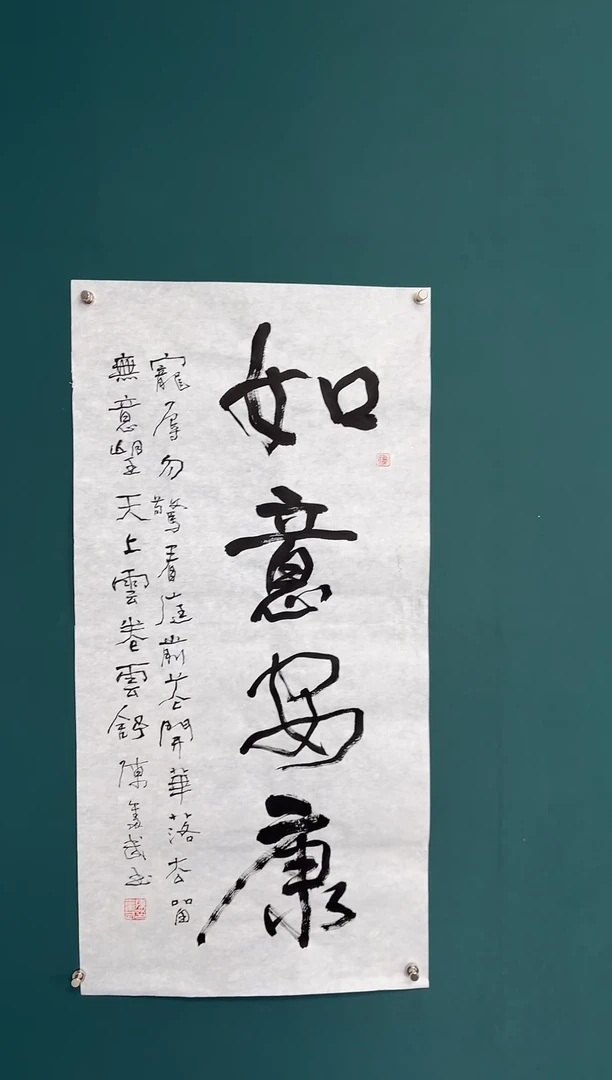 如意安康
寵辱勿驚看庭前花開華落去留
無意望天上雲卷雲舒陳